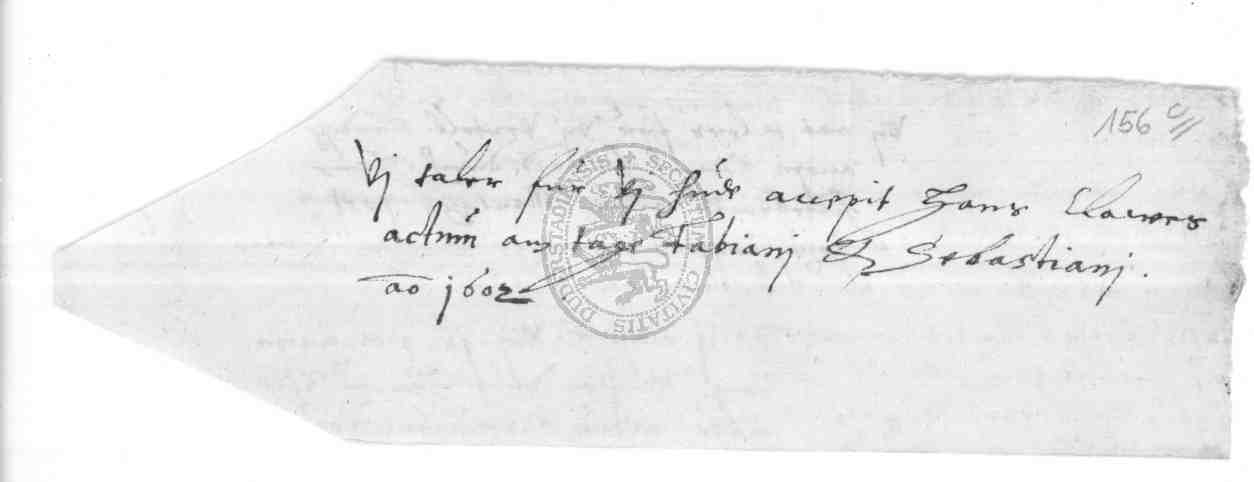 156 c
vj taler für vj hüde accepit Hans Clawes
actum am tage Fabianj & Sebastianj.
ao 1602
SECRETUM CIVITATIS DUDERSTADIENSIS